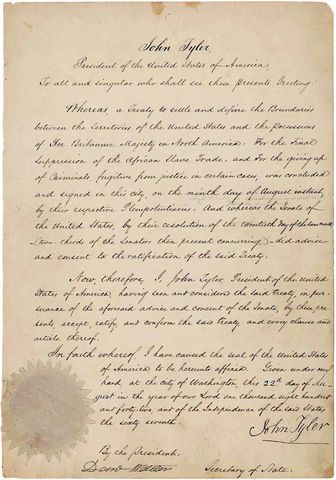 John Tyler,
President of the United States of America,
To all and singular who shall see these presents Greeting:
Whereas, a Treaty to settle and define the Boundaries
between the Territories of the United States and the possessions
of Her Britannic Majesty in North America: For the Final
Suppression of the African Slave Trade: and For the giving up
of Criminals, fugitive from justice in certain cases, was concluded
and signed in this city, on the ninth day of August instant,
by their respective Plenipotentiaries: And whereas the Senate of
the United States, by their resolution of the twentieth day of the
(two thirds of the Senators then present concurring) did advise
and consent to the ratification of the said Treaty:
Now, therefore, I, John Tyler, President of the United
States of America, having seen and considered the said Treaty, in pur-
suance of the aforesaid advice and consent of the Senate, by these pre-
sents, accept, ratify, and confirm the said Treaty and every clause and
article thereof.
In faith whereof, I have caused the seal of the United States
of America to be hereunto affixed. Given under my
hand, at the city of Washington, this 22d day of Au-
gust in the year of our Lord one thousand eight hundred
and forty-two, and of the Independence of the said States,
the sixty seventh.
John Tyler
By the President,
Secretary of State.